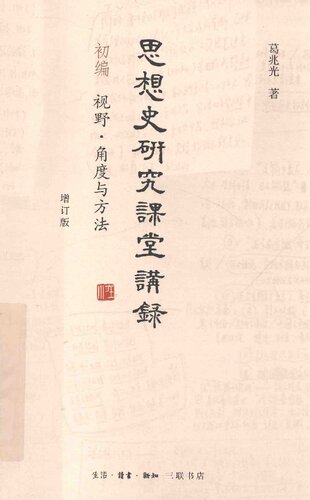 葛兆光 著
思想史研究課堂講録
初编 视野·角度与方法
增订版
生活·讀書·新知 三联书店